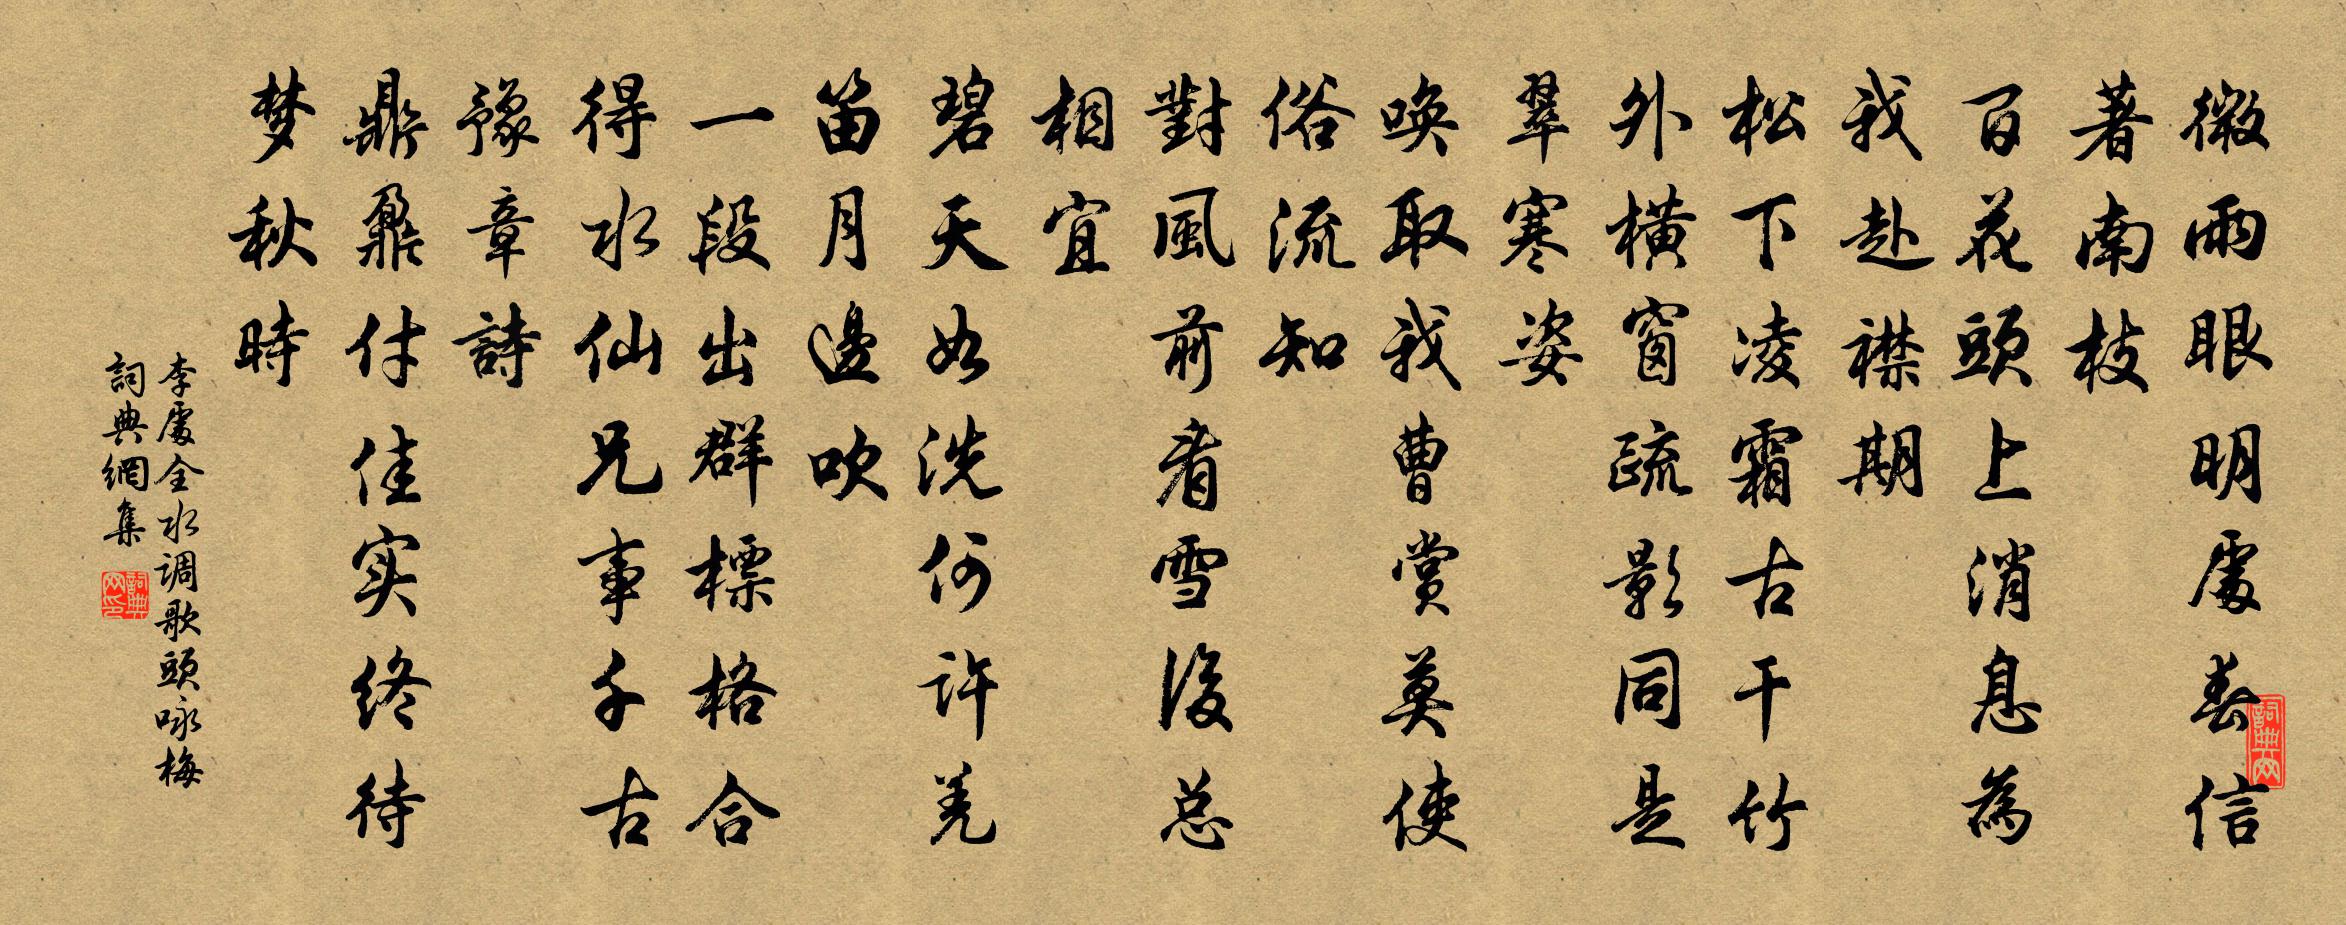 微雨眼明處春信
著南枝
百花頭上消息為
我赴襟期
松下凌霜古干竹
外橫窗疏影同是
翠寒姿
喚取我曹賞莫使
俗流知
對風前看雪後总
相宜
碧天如洗何許羌
笛月邊吹
一段出群標格合
得水仙兄事千古
豫章詩
鼎鼐付佳实终待
梦秋時
李處全水调歌頭咏梅
詞典網集
詞典网
詞典网印